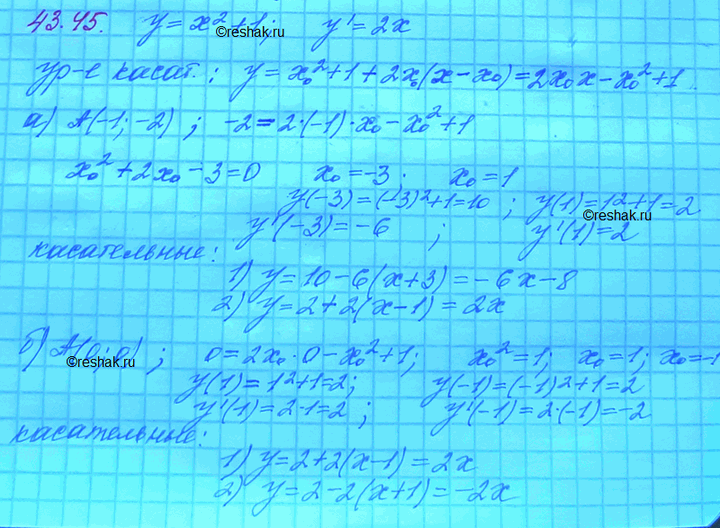 43.45. y = x² + 1; y' = 2x
©reshak.ru
ур-е касат.: y = x₀² + 1 + 2x₀(x - x₀) = 2x₀x - x₀² + 1.
а) A(-1; -2); -2 = 2·(-1)·x₀ - x₀² + 1
x₀² + 2x₀ - 3 = 0 x₀ = -3. x₀ = 1
y(-3) = (-3)² + 1 = 10; y(1) = 1² + 1 = 2
©reshak.ru
y'(-3) = -6; y'(1) = 2
касательные:
1) y = 10 - 6(x + 3) = -6x - 8
2) y = 2 + 2(x - 1) = 2x
б) A(0; 0); 0 = 2x₀·0 - x₀² + 1; x₀² = 1; x₀ = 1; x₀ = -1
©reshak.ru
y(1) = 1² + 1 = 2; y(-1) = (-1)² + 1 = 2
y'(1) = 2·1 = 2; y'(-1) = 2·(-1) = -2
касательные:
1) y = 2 + 2(x - 1) = 2x
2) y = 2 - 2(x + 1) = -2x